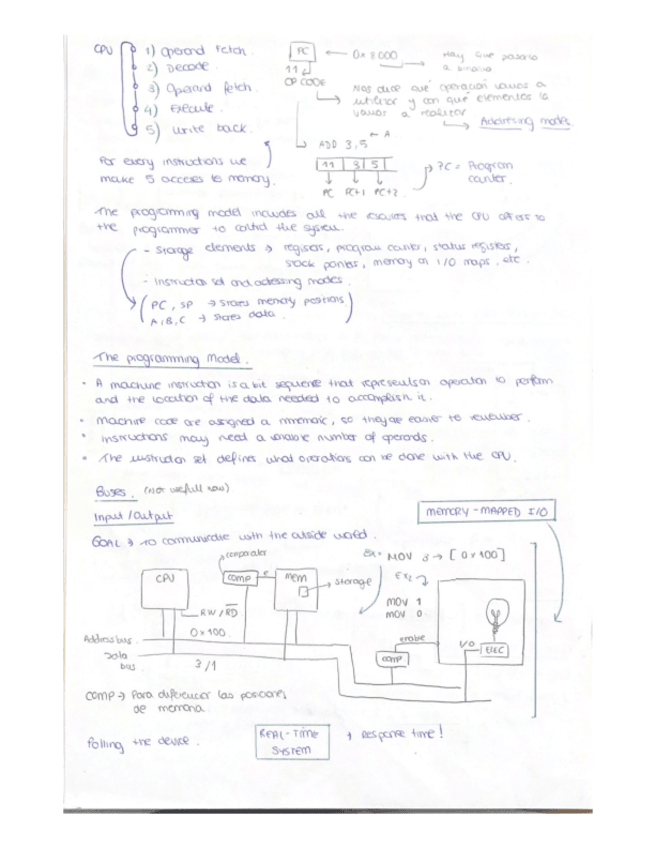 CPU
1) Operand Fetch.
2) Decode.
3) Operand fetch.
4) Execute.
5) write back.
For every instructions we
make 5 accesses to memory.
PC ← 0x8000 → Hay que pasarlo
a binario
11
OP CODE
Nos dice qué operación vamos a
utilizar y con qué elementos la
vamos a realizar
→ Addressing modes
← A
ADD 3,5
11 3 5
PC PC+1 PC+2
→ PC = Program
counter.
The programming model includes all the resources that the CPU offers to
the programmer to control the system.
- Storage elements → registers, program counter, status registers,
stack pointers, memory on I/O maps, etc.
- Instruction set and adressing modes.
PC, SP → stores memory positions
A,B,C → stores data.
The programming Model.
• A machine instruction is a bit sequence that represents an operation to perform
and the location of the data needed to accomplish it.
• Machine code are assigned a mnemonic, so they are easier to remember.
• Instructions may need a variable number of operands.
• The instruction set defines what operations can be done with the CPU.
Buses. (Not usefull now)
Input/Output
MEMORY-MAPPED I/O
GOAL → To communicate with the outside world.
Ex. MOV 3 → [0x100]
comparater
CPU
COMP
e
Mem
→ storage
Ex2
MOV 1
MOV 0
RW/RD
0x100
Address bus.
Data
bus.
3/1
enable
COMP
I/O
ELEC
COMP → Para diferenciar las posiciones
de memoria
Polling the device.
REAL-TIME
SYSTEM
↑ Response time!